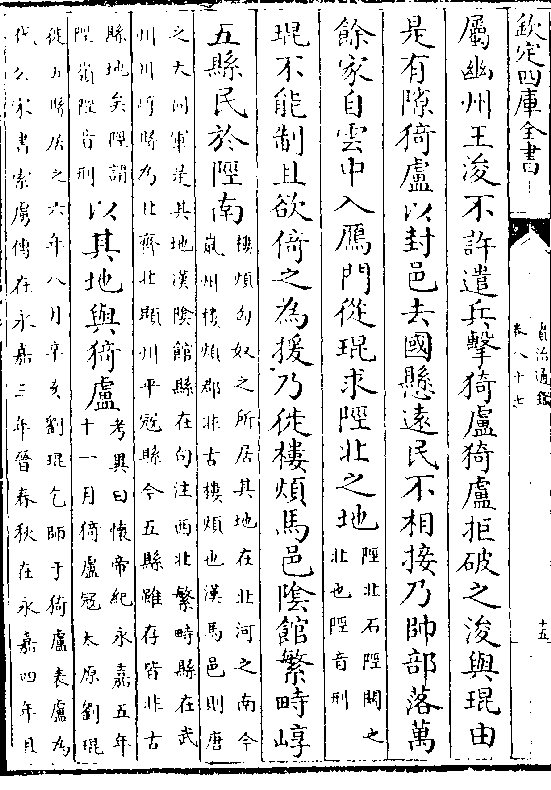 欽定四庫全書
資治通鑑
卷八十七
十五
屬幽州王浚不許遣兵擊猗盧猗盧拒破之浚與琨由
是有隙猗盧以封邑去國懸遠民不相接乃帥部落萬
餘家自雲中入鴈門從琨求陘北之地
陘北石陘關之
北也陘音刑
琨不能制且欲倚之為援乃徙樓煩馬邑陰館繁畤崞
五縣民於陘南
樓煩匈奴之所居其地在北河之南今
嵐州樓煩郡非古樓煩也漢馬邑則唐
之大同軍是其地漢陰館縣在句注西北繁畤縣在武
州川崞縣為北齊北顯州平冦縣今五縣雖存皆非古
縣地矣陘謂
陘嶺陘音刑
以其地與猗盧
考異曰懷帝紀永嘉五年
十一月猗盧冦太原劉琨
徙五縣居之六年八月辛亥劉琨乞師于猗盧表盧為
代公宋書索虜傳在永嘉三年晉春秋在永嘉四年且